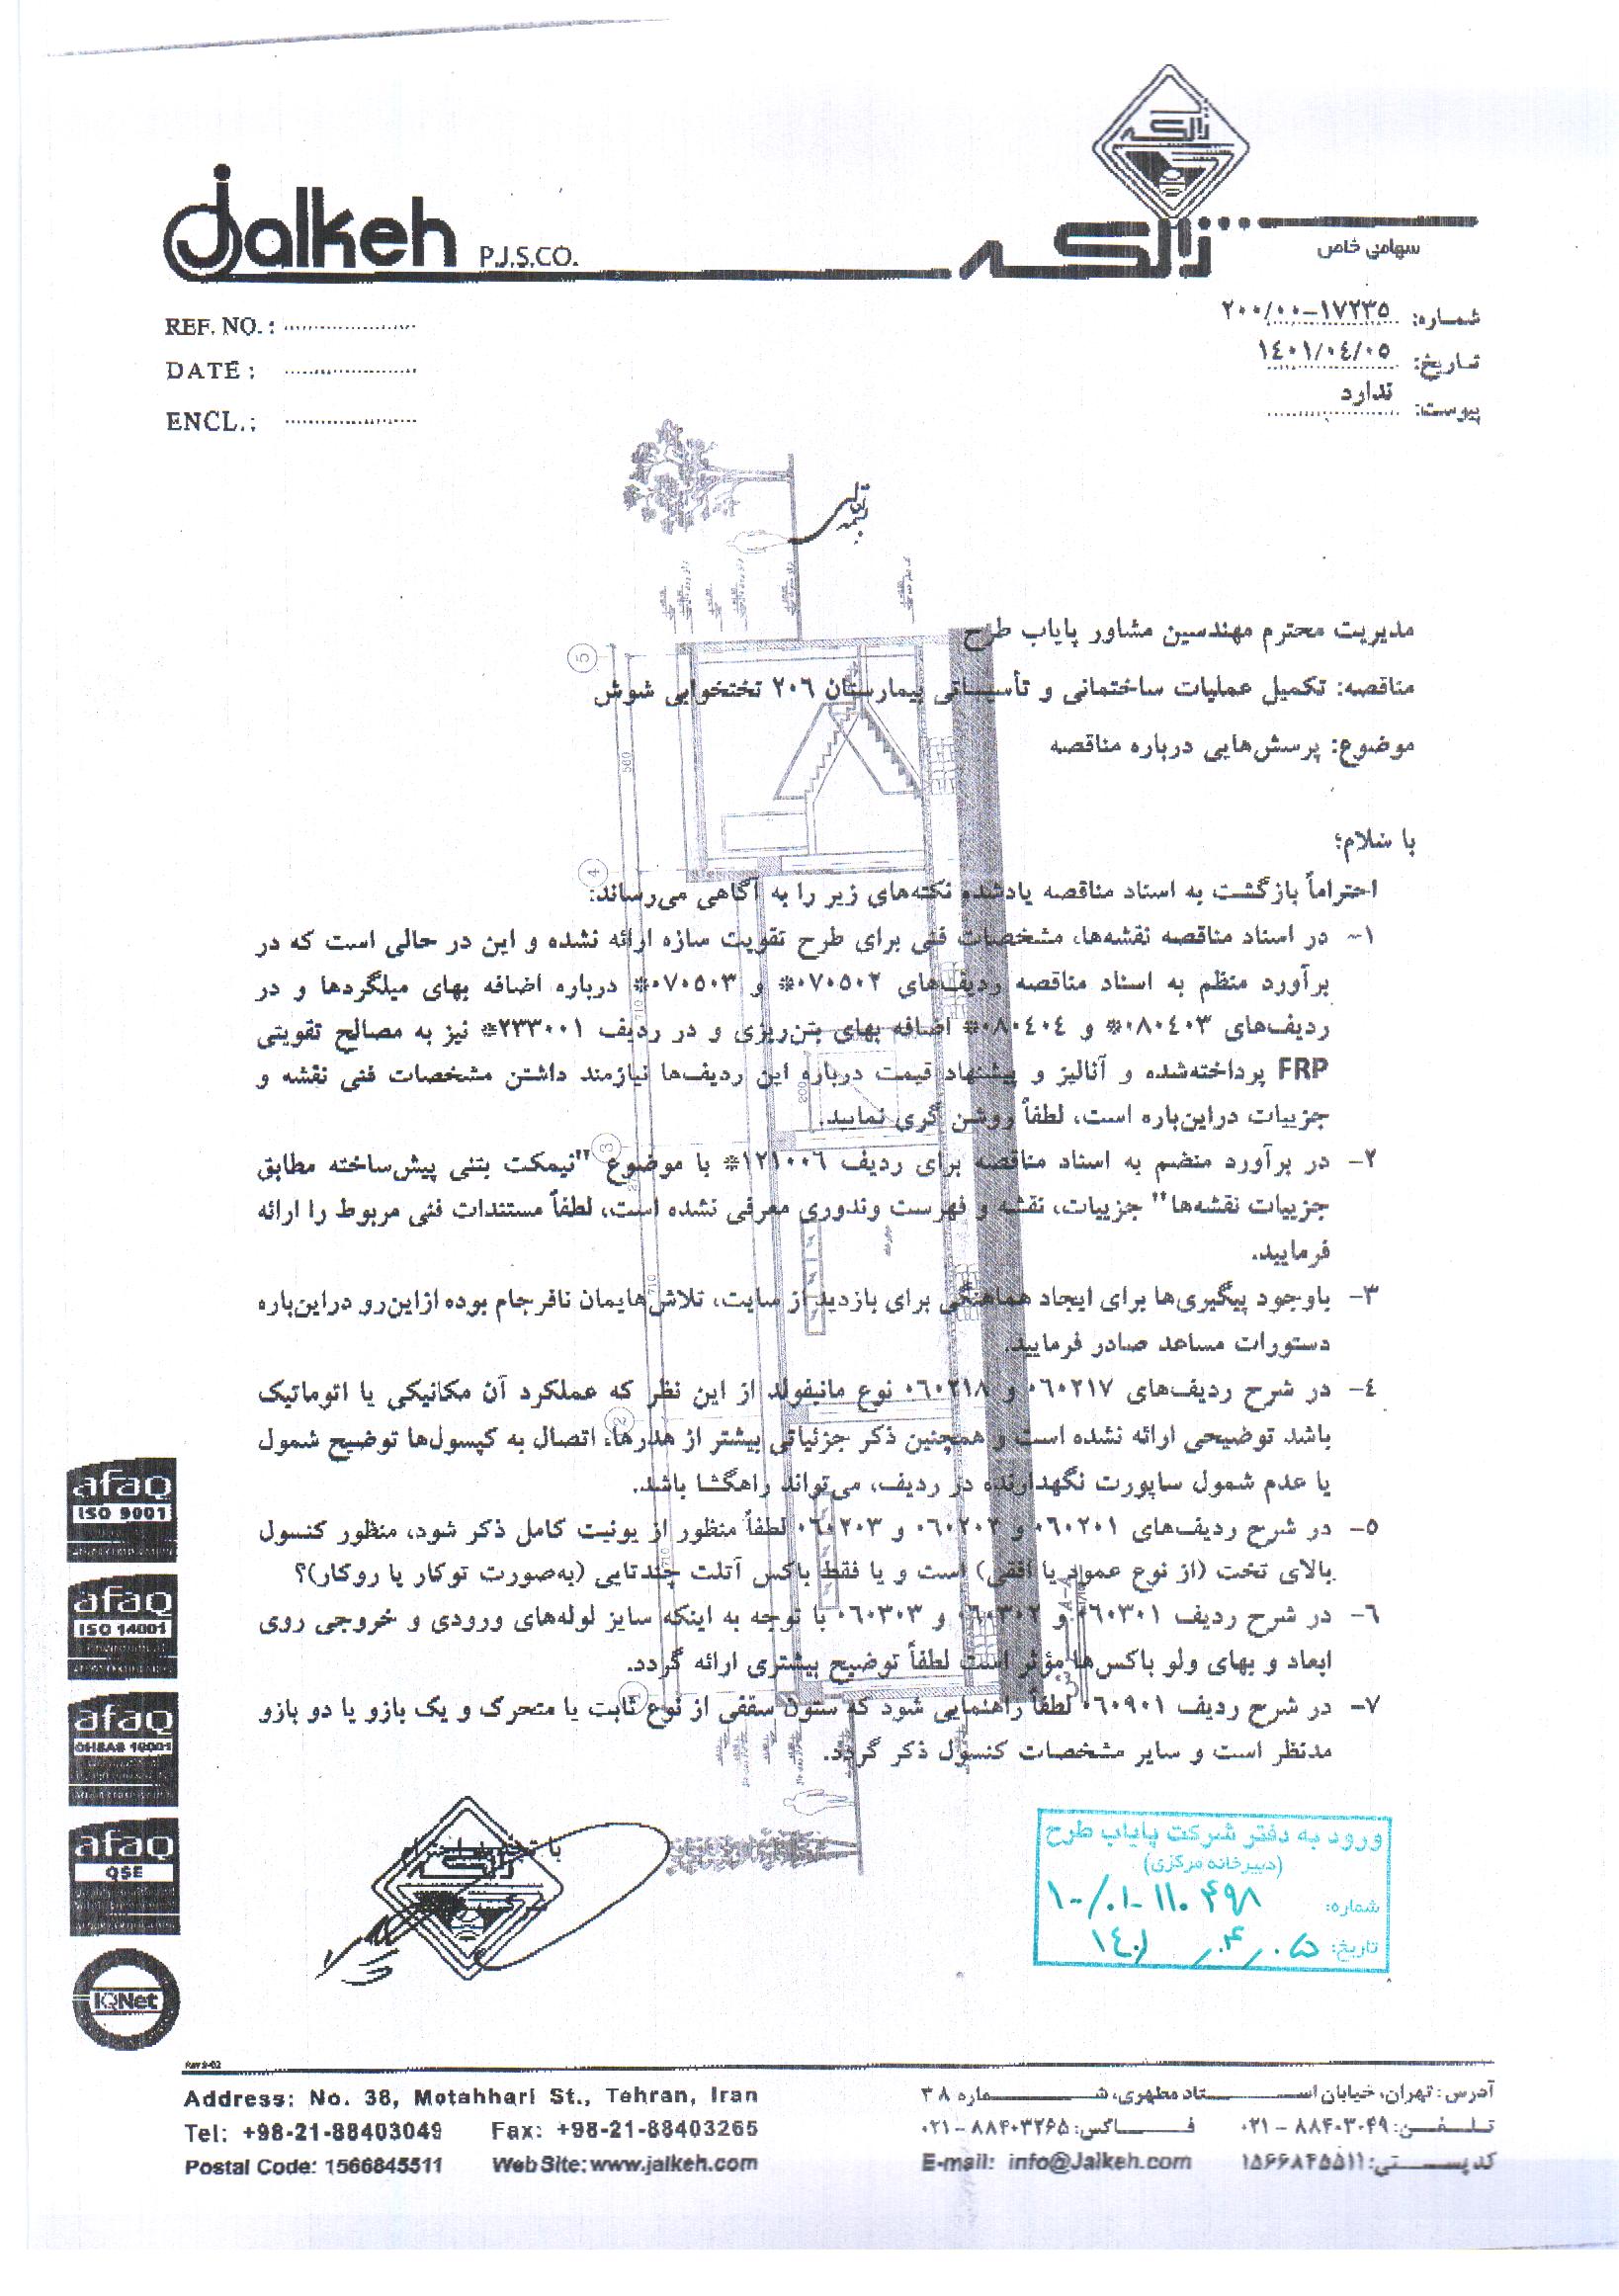 ژالکه
Jalkeh P.J.S.CO.
ژالکه
سهامی خاص
REF. NO. :
DATE :
ENCL. :
شماره: ۲۰۰/۰۰-۱۷۲۳۵
تاریخ: ۱٤۰۱/۰٤/۰۵
پیوست: ندارد
مدیریت محترم مهندسین مشاور پایاب طرح
مناقصه: تکمیل عملیات ساختمانی و تأسیساتی بیمارستان ۲۰۶ تختخوابی شوش
موضوع: پرسش‌هایی درباره مناقصه
با سلام؛
احتراماً بازگشت به اسناد مناقصه یادشده نکته‌های زیر را به آگاهی می‌رساند:
۱- در اسناد مناقصه نقشه‌ها، مشخصات فنی برای طرح تقویت سازه ارائه نشده و این در حالی است که در
برآورد منظم به اسناد مناقصه ردیف‌های ۰۷۰۵۰۲* و ۰۷۰۵۰۳* درباره اضافه بهای میلگردها و در
ردیف‌های ۰۸۰٤۰۳* و ۰۸۰٤۰٤* اضافه بهای بتن‌ریزی و در ردیف ۲۳۳۰۰۱* نیز به مصالح تقویتی
FRP پرداخته‌شده و آنالیز و پیشنهاد قیمت درباره این ردیف‌ها نیازمند داشتن مشخصات فنی نقشه و
جزییات دراین‌باره است، لطفاً روشن گری نمایید.
۲- در برآورد منضم به اسناد مناقصه برای ردیف ۱۲۱۰۰۶* با موضوع "نیمکت بتنی پیش‌ساخته مطابق
جزییات نقشه‌ها" جزییات، نقشه و فهرست وندوری معرفی نشده است، لطفاً مستندات فنی مربوط را ارائه
فرمایید.
۳- باوجود پیگیری‌ها برای ایجاد هماهنگی برای بازدید از سایت، تلاش‌هایمان نافرجام بوده ازاین‌رو دراین‌باره
دستورات مساعد صادر فرمایید.
٤- در شرح ردیف‌های ۰۶۰۲۱۷ و ۰۶۰۲۱۸ نوع مانیفولد از این نظر که عملکرد آن مکانیکی یا اتوماتیک
باشد توضیحی ارائه نشده است و همچنین ذکر جزئیاتی بیشتر از هدرها، اتصال به کپسول‌ها توضیح شمول
یا عدم شمول ساپورت نگهدارنده در ردیف، می‌تواند راهگشا باشد.
۵- در شرح ردیف‌های ۰۶۰۲۰۱ و ۰۶۰۲۰۲ و ۰۶۰۲۰۳ لطفاً منظور از یونیت کامل ذکر شود، منظور کنسول
بالای تخت (از نوع عمود یا افقی) است و یا فقط باکس آتلت چندتایی (به‌صورت توکار یا روکار)؟
۶- در شرح ردیف ۰۶۰۳۰۱ و ۰۶۰۳۰۲ و ۰۶۰۳۰۳ با توجه به اینکه سایز لوله‌های ورودی و خروجی روی
ابعاد و بهای ولو باکس‌ها مؤثر است لطفاً توضیح بیشتری ارائه گردد.
۷- در شرح ردیف ۰۶۰۹۰۱ لطفاً راهنمایی شود که ستون سقفی از نوع ثابت یا متحرک و یک بازو یا دو بازو
مدنظر است و سایر مشخصات کنسول ذکر گردد.
ورود به دفتر شرکت پایاب طرح
(دبیرخانه مرکزی)
شماره: ۱۰/۰۱-۱۱۰۴۹۸
تاریخ: ۱۴۰۱/۰۴/۰۵
5
4
3
2
500
710
710
710
200
A-A
afaq
ISO 9001
afaq
ISO 14001
afaq
OHSAS 18001
afaq
QSE
IQNet
Rev 9-02
Address: No. 38, Motahhari St., Tehran, Iran
Tel: +98-21-88403049 Fax: +98-21-88403265
Postal Code: 1566845511 WebSite: www.jalkeh.com
آدرس: تهران، خیابان استاد مطهری، شماره ۳۸
تلفن: ۸۸۴۰۳۰۴۹ - ۰۲۱ فاکس: ۸۸۴۰۳۲۶۵ - ۰۲۱
کد پستی: ۱۵۶۶۸۴۵۵۱۱ E-mail: info@Jalkeh.com